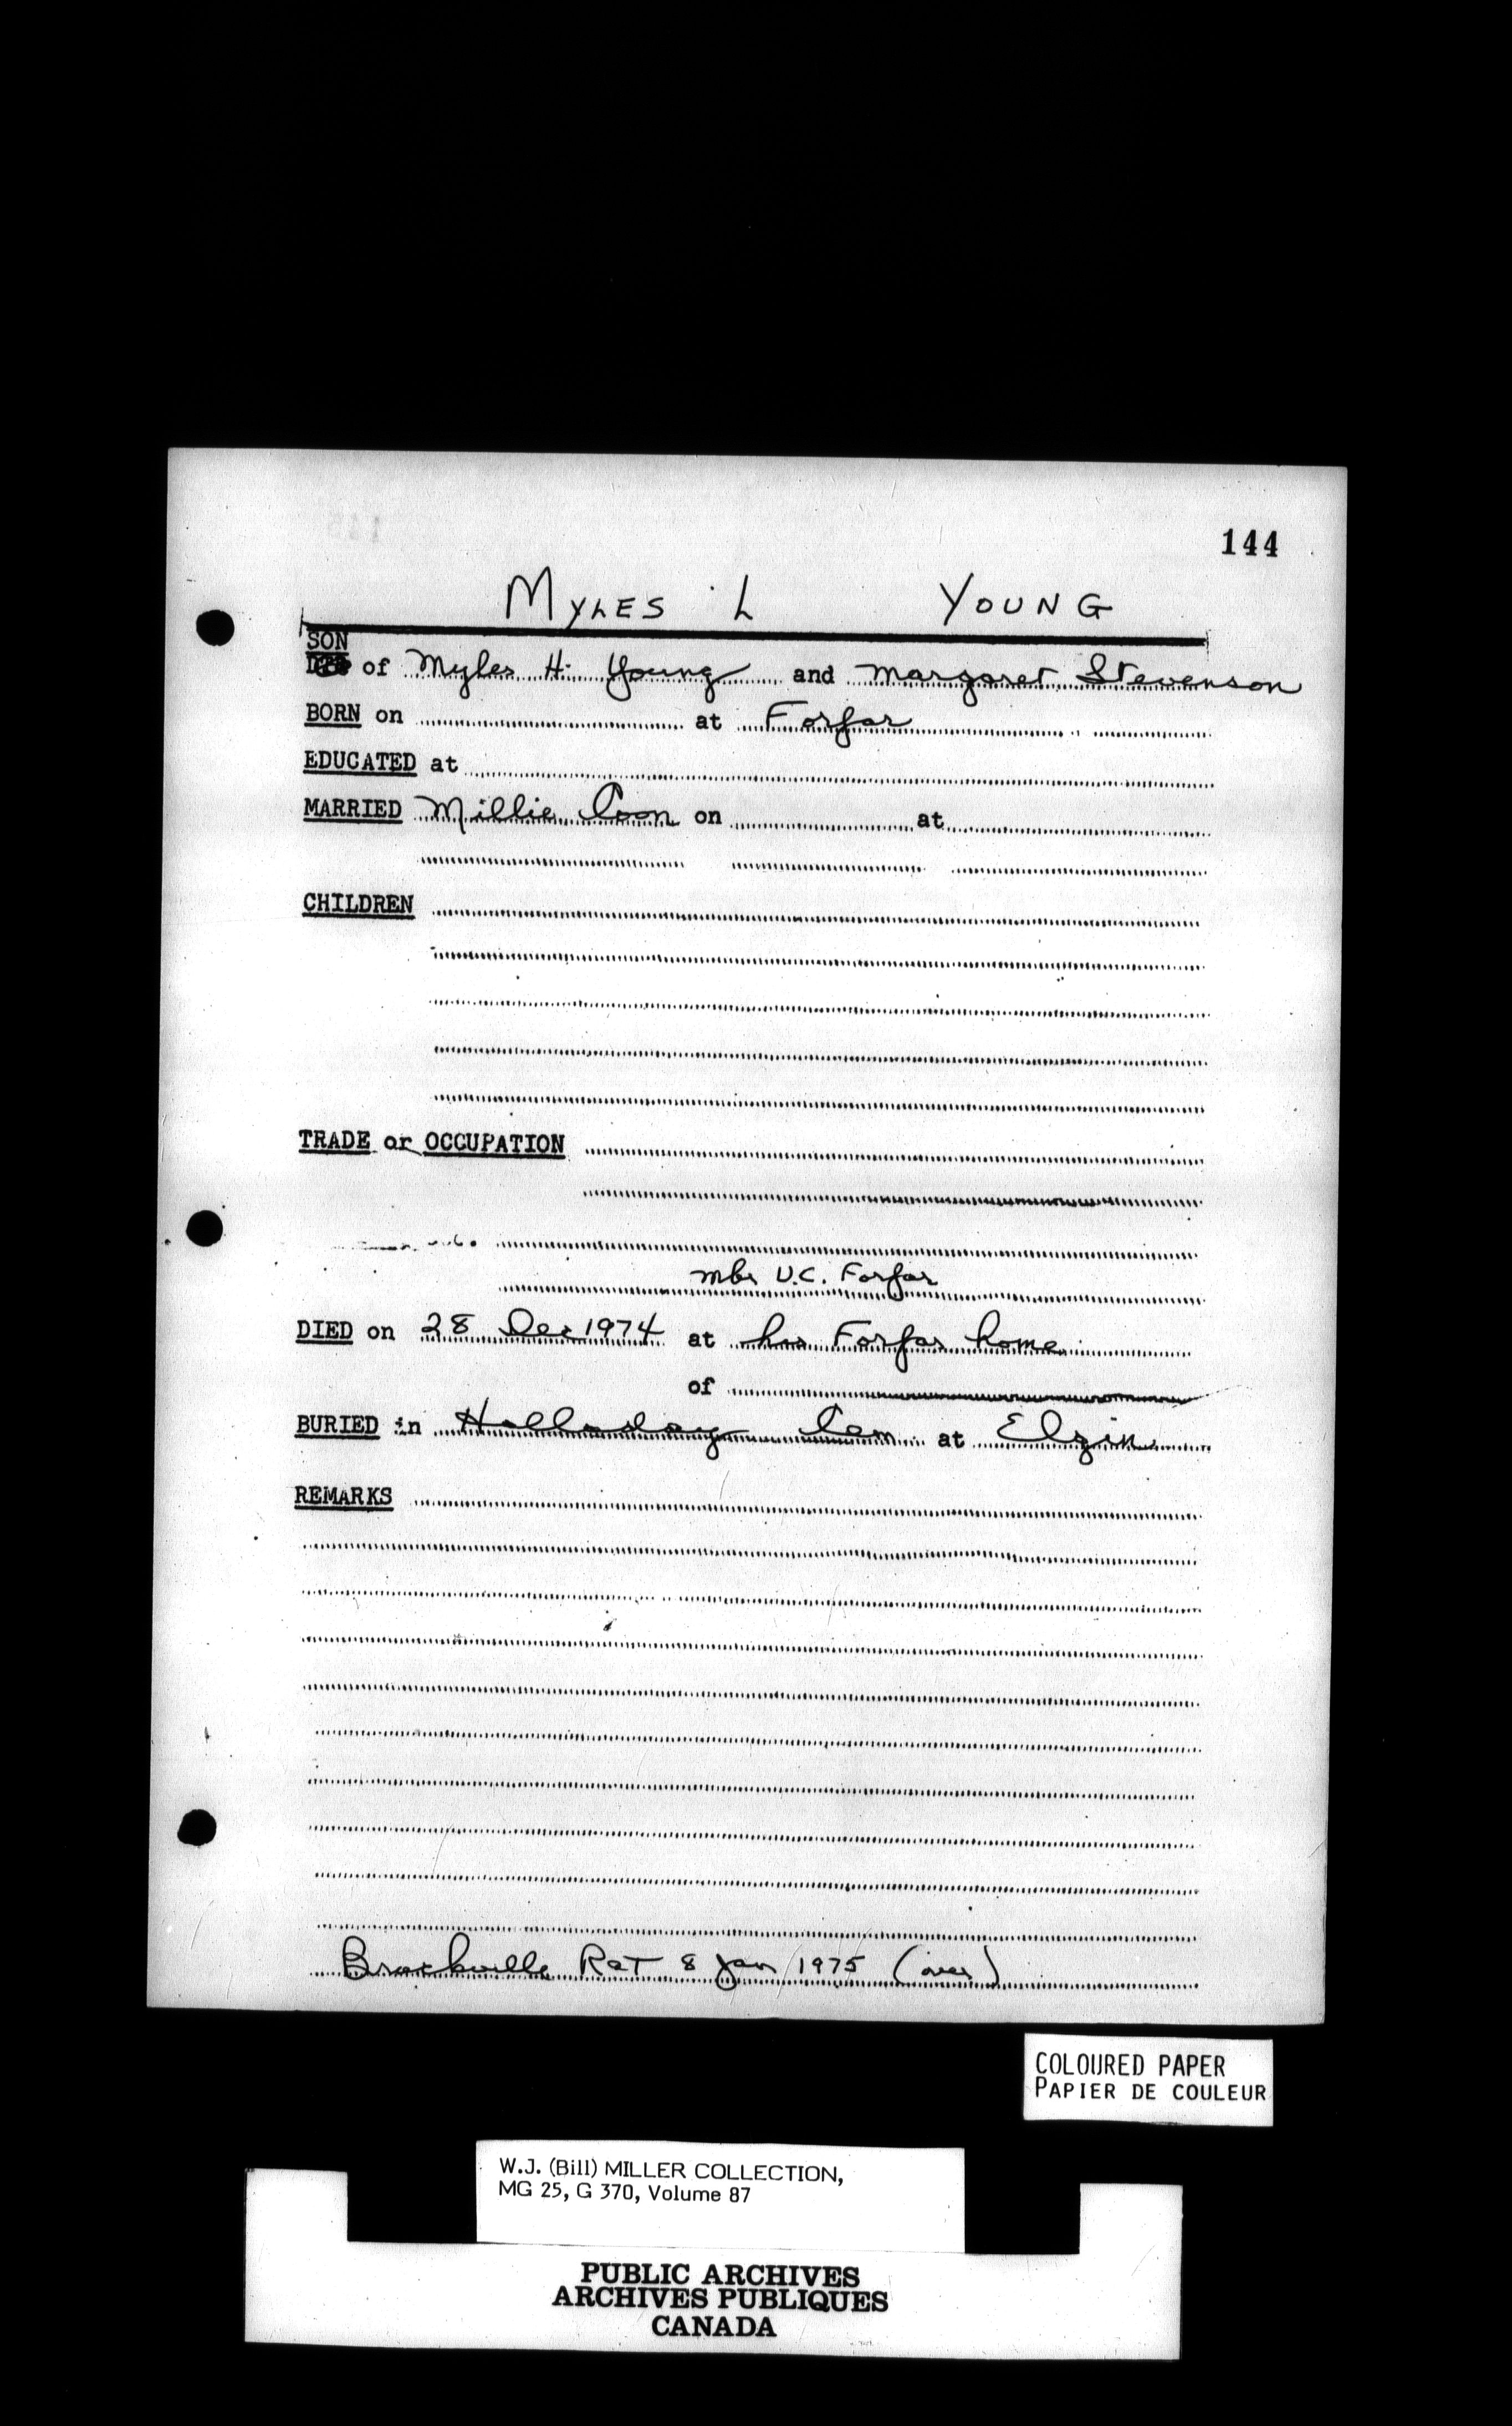 144
MYLES L YOUNG
SON
of Myles H. Young and Margaret Stevenson
BORN on at Forfar
EDUCATED at
MARRIED Millie Coon on at
CHILDREN
TRADE or OCCUPATION
mbr U.C. Forfar
DIED on 28 Dec 1974 at his Forfar home
of
BURIED in Halladay Cem at Elgin
REMARKS
Brockville R&T 8 Jan 1975 (over)
COLOURED PAPER
PAPIER DE COULEUR
W.J. (Bill) MILLER COLLECTION,
MG 25, G 370, Volume 87
PUBLIC ARCHIVES
ARCHIVES PUBLIQUES
CANADA